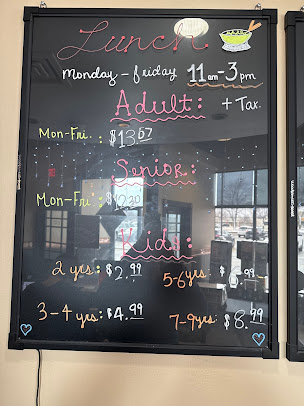 Lunch
Monday - friday 11am-3pm
Adult: + Tax.
Mon-Fri. : $13.67
Senior:
Mon-Fri :
Kids:
2 yrs.: $2.99
5-6yrs: $ .99
3-4 yrs: $4.99
7-9yrs: $8.99